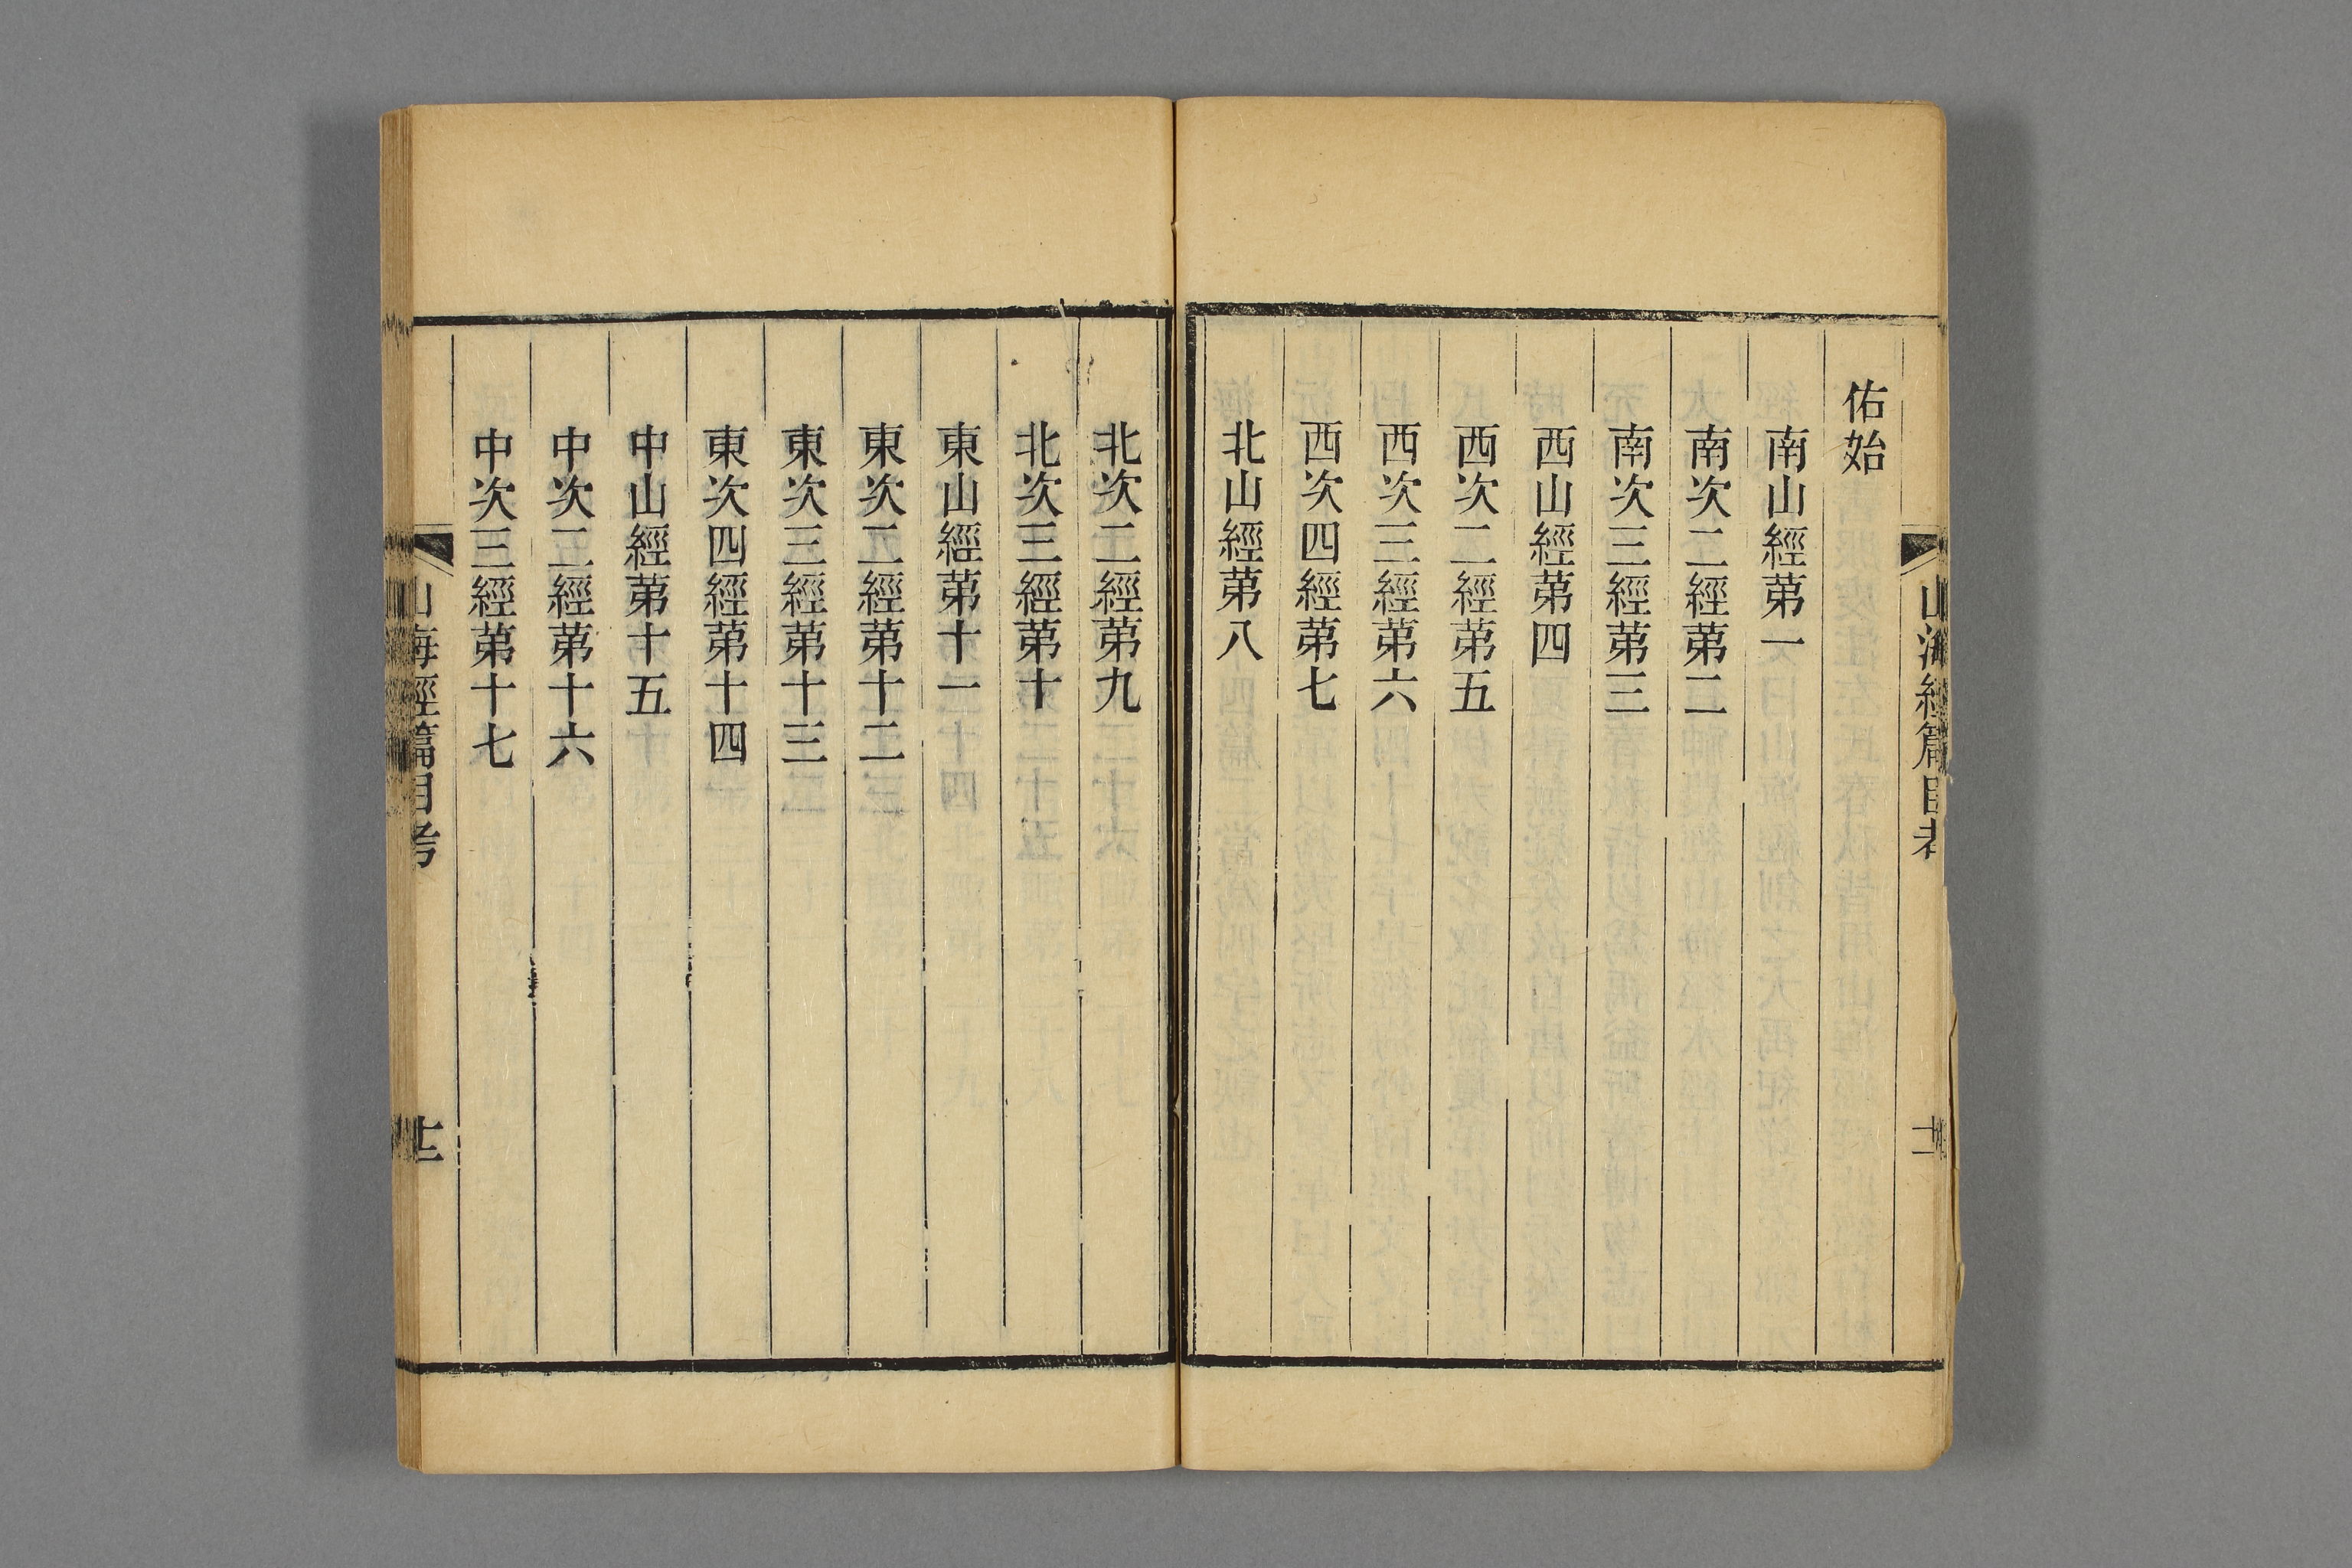 山海經篇目考
佑始
南山經第一
南次二經第二
南次三經第三
西山經第四
西次二經第五
西次三經第六
西次四經第七
北山經第八
北次二經第九
北次三經第十
東山經第十一
東次二經第十二
東次三經第十三
東次四經第十四
中山經第十五
中次二經第十六
中次三經第十七
山海經篇目考